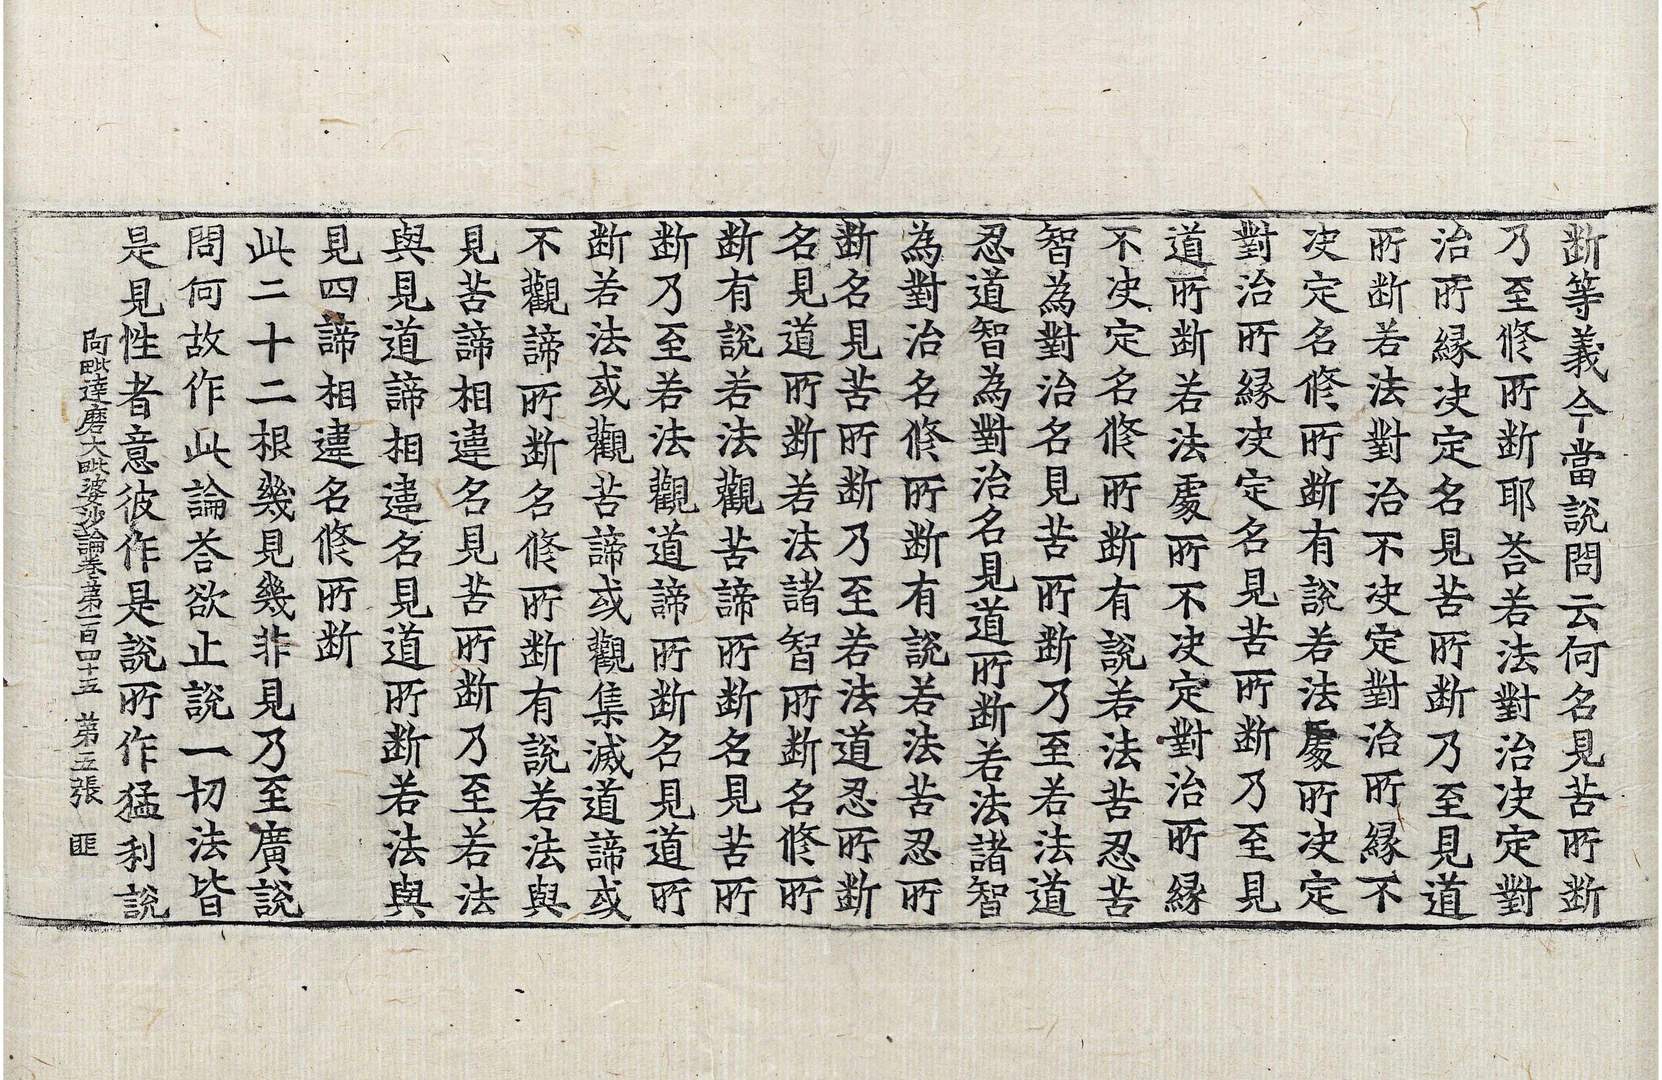 断等義今當說問云何名見苦所断
乃至修所断耶荅若法對治决定對
治所縁决定名見苦所断乃至見道
所断若法對治不决定對治所縁不
决定名修所断有說若法處所决定
對治所縁决定名見苦所断乃至見
道所断若法處所不决定對治所縁
不决定名修所断有說若法苦忍苦
智為對治名見苦所断乃至若法道
忍道智為對治名見道所断若法諸智
為對治名修所断有說若法苦忍所
断名見苦所断乃至若法道忍所断
名見道所断若法諸智所断名修所
断有說若法觀苦諦所断名見苦所
断乃至若法觀道諦所断名見道所
断若法或觀苦諦或觀集滅道諦或
不觀諦所断名修所断有說若法與
見苦諦相違名見苦所断乃至若法
與見道諦相違名見道所断若法與
見四諦相違名修所断
此二十二根幾見幾非見乃至廣說
問何故作此論荅欲止說一切法皆
是見性者意彼作是說所作猛利說
阿毗達磨大毗婆沙論卷第一百四十五 第五張 匪